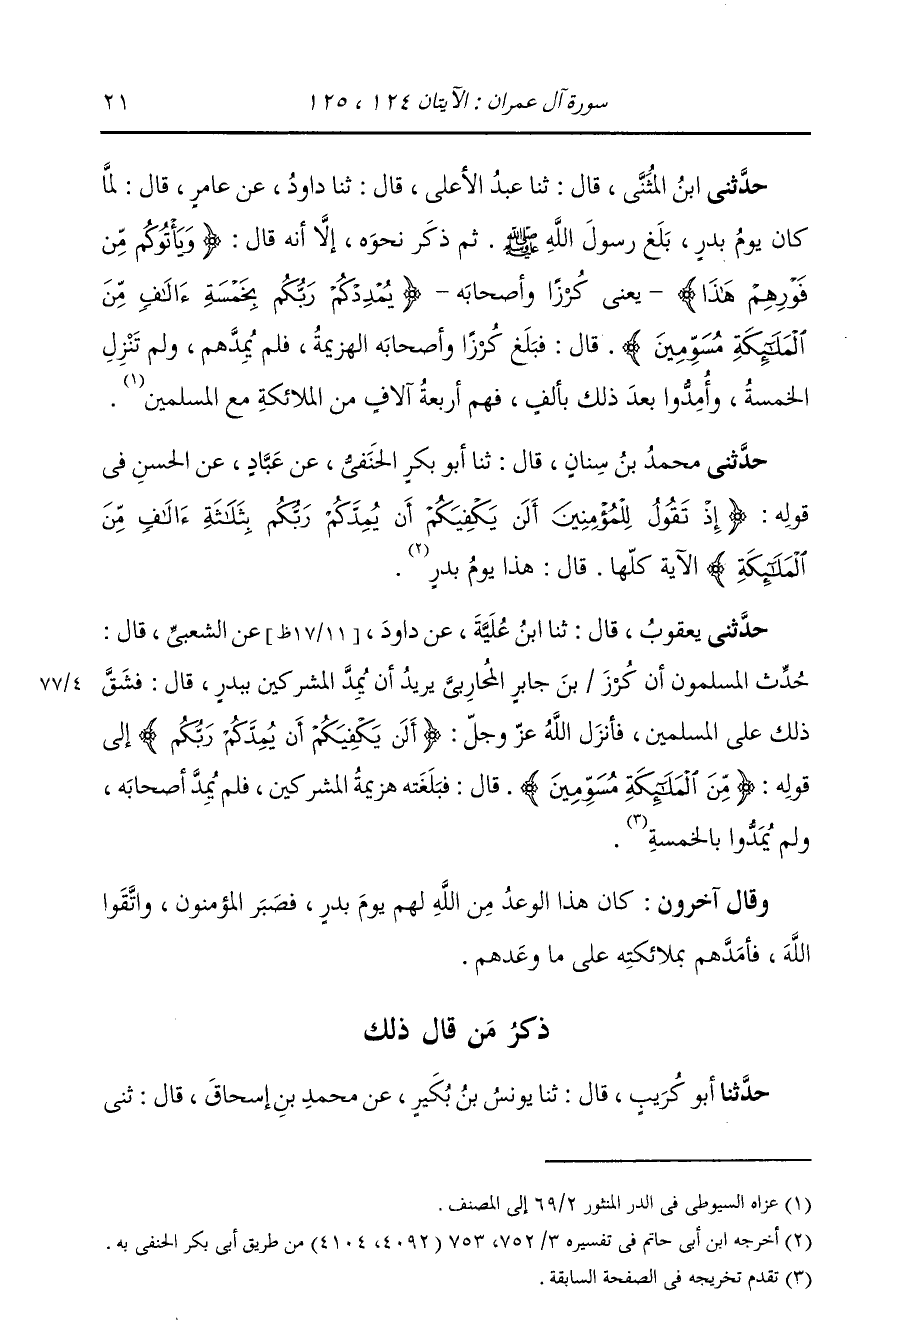 سورة آل عمران : الآيتان ١٢٤ ، ١٢٥ ٢١
حدَّثنى ابنُ المُثَنَّى ، قال : ثنا عبدُ الأعلى ، قال : ثنا داودُ ، عن عامرٍ ، قال : لمَّا
كان يومُ بدرٍ ، بَلَغ رسولَ اللَّهِ ﷺ . ثم ذكَر نحوَه ، إلَّا أنه قال : ﴿ وَيَأْتُوكُم مِّن
فَوْرِهِمْ هَٰذَا ﴾ - يعنى كُرْزًا وأصحابَه - ﴿ يُمْدِدْكُمْ رَبُّكُم بِخَمْسَةِ ءَالَٰفٍ مِّنَ
ٱلْمَلَٰٓئِكَةِ مُسَوِّمِينَ ﴾ . قال : فبَلَغ كُرْزًا وأصحابَه الهزيمةُ ، فلم يُمِدَّهم ، ولم تَنْزِلِ
الخمسةُ ، وأُمِدُّوا بعدَ ذلك بألفٍ ، فهم أربعةُ آلافٍ من الملائكةِ مع المسلمين(١) .
حدَّثنى محمدُ بنُ سِنانٍ ، قال : ثنا أبو بكرٍ الحَنَفىُّ ، عن عَبَّادٍ ، عن الحسنِ فى
قولِه : ﴿ إِذْ تَقُولُ لِلْمُؤْمِنِينَ أَلَن يَكْفِيَكُمْ أَن يُمِدَّكُمْ رَبُّكُم بِثَلَٰثَةِ ءَالَٰفٍ مِّنَ
ٱلْمَلَٰٓئِكَةِ ﴾ الآية كلّها . قال : هذا يومُ بدرٍ(٢) .
حدَّثنى يعقوبُ ، قال : ثنا ابنُ عُلَيَّةَ ، عن داودَ ، [١٧/١١ظ] عن الشعبىِّ ، قال :
حُدِّث المسلمون أن كُرْزَ / بنَ جابرٍ المُحاربىَّ يريدُ أن يُمِدَّ المشركين ببدرٍ ، قال : فشَقَّ ٧٧/٤
ذلك على المسلمين ، فأنزَل اللَّهُ عزّ وجلّ : ﴿ أَلَن يَكْفِيَكُمْ أَن يُمِدَّكُمْ رَبُّكُم ﴾ إلى
قولِه : ﴿ مِّنَ ٱلْمَلَٰٓئِكَةِ مُسَوِّمِينَ ﴾ . قال : فبَلَغَته هزيمةُ المشركين ، فلم يُمِدَّ أصحابَه ،
ولم يُمَدُّوا بالخمسةِ(٣) .
وقال آخرون : كان هذا الوعدُ مِن اللَّهِ لهم يومَ بدرٍ ، فصَبَر المؤمنون ، واتَّقَوا
اللَّهَ ، فأمَدَّهم بملائكتِه على ما وعَدهم .
ذكرُ مَن قال ذلك
حدَّثنا أبو كُرَيبٍ ، قال : ثنا يونسُ بنُ بُكَيرٍ ، عن محمدِ بنِ إسحاقَ ، قال : ثنى
(١) عزاه السيوطى فى الدر المنثور ٦٩/٢ إلى المصنف .
(٢) أخرجه ابن أبى حاتم فى تفسيره ٣/ ٧٥٢، ٧٥٣ (٤٠٩٢، ٤١٠٤) من طريق أبى بكر الحنفى به .
(٣) تقدم تخريجه فى الصفحة السابقة .